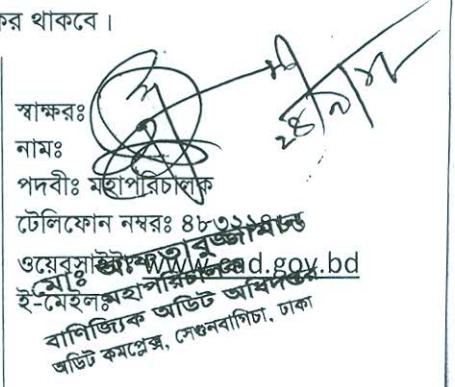 কর থাকবে।
স্বাক্ষরঃ
নামঃ
পদবীঃ মহাপরিচালক
টেলিফোন নম্বরঃ
ওয়েবসাইটঃ www.cad.gov.bd
ই-মেইলঃ
মোঃ
মহাপরিচালক
বাণিজ্যিক অডিট অধিদপ্তর
অডিট কমপ্লেক্স, সেগুনবাগিচা, ঢাকা